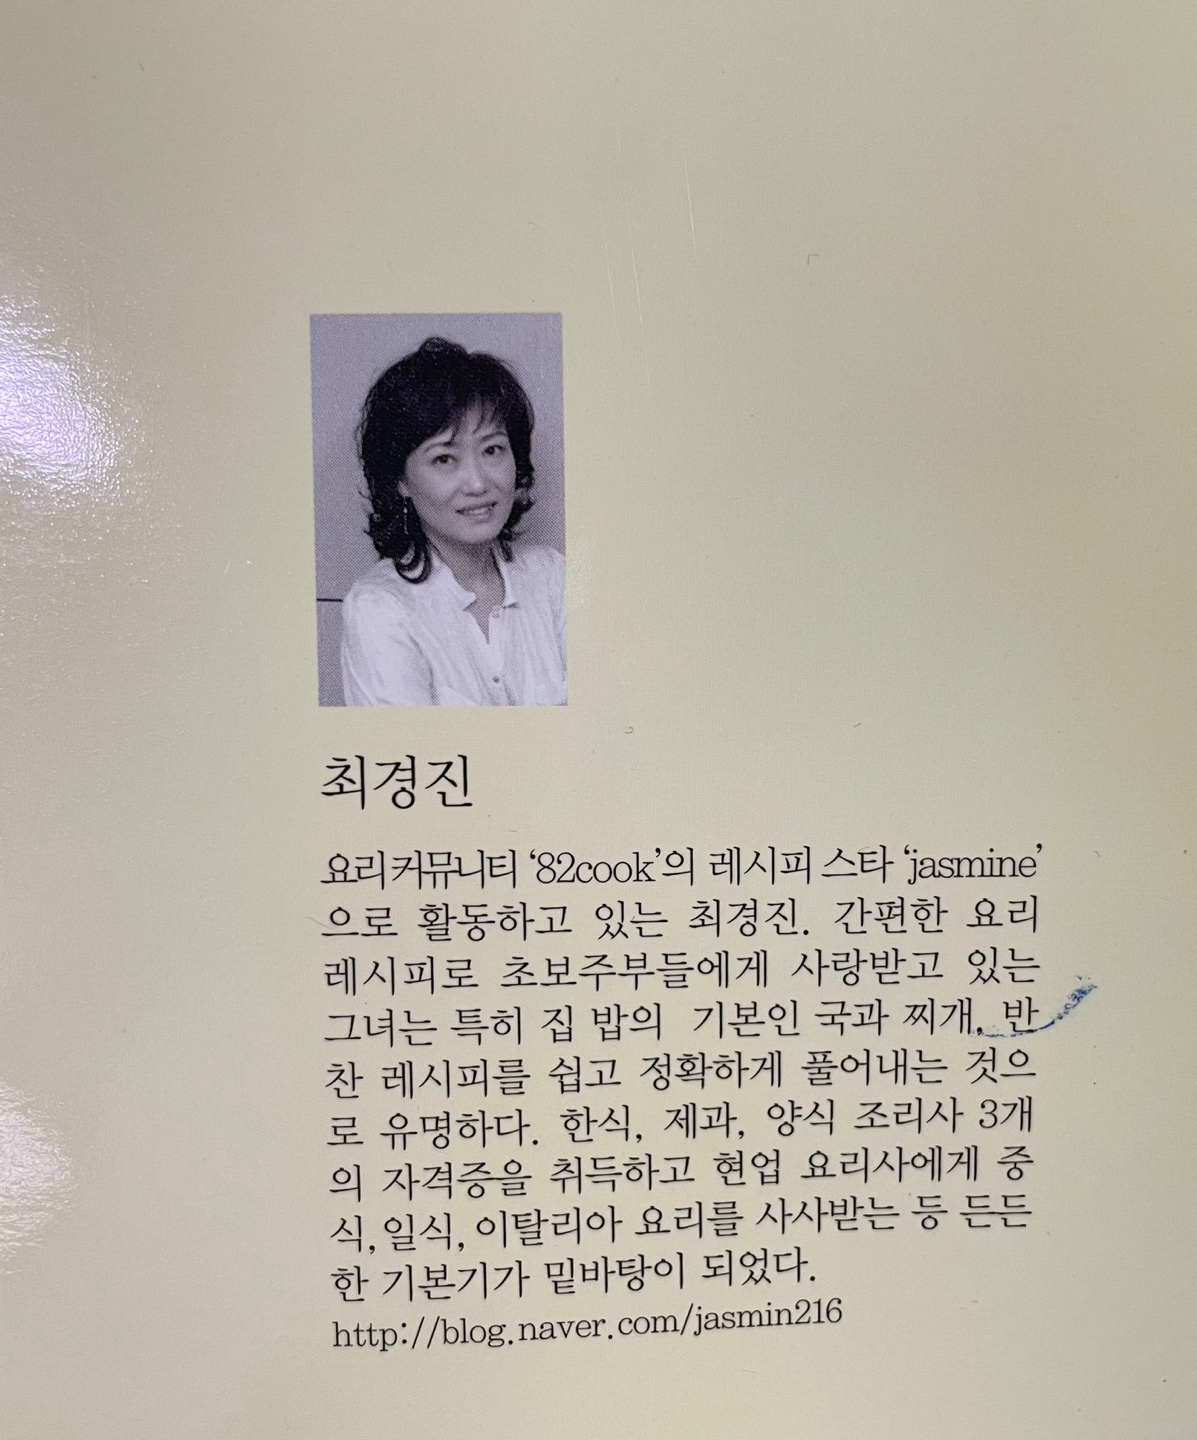 최경진
요리커뮤니티 ‘82cook’의 레시피 스타 ‘jasmine’
으로 활동하고 있는 최경진. 간편한 요리
레시피로 초보주부들에게 사랑받고 있는
그녀는 특히 집 밥의 기본인 국과 찌개, 반
찬 레시피를 쉽고 정확하게 풀어내는 것으
로 유명하다. 한식, 제과, 양식 조리사 3개
의 자격증을 취득하고 현업 요리사에게 중
식, 일식, 이탈리아 요리를 사사받는 등 든든
한 기본기가 밑바탕이 되었다.
http://blog.naver.com/jasmin216